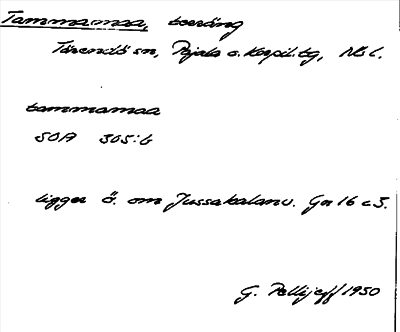 Tammamaa, boräng
Tärendö sn, Pajala o. Korpil. tg, Nb l.
tammamaa
SOA 305:6
ligger ö. om Jussakalanv. Gr 16 c 3.
G. Pellijeff 1950